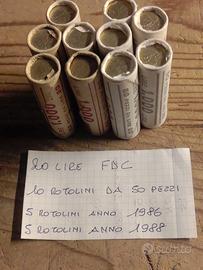 1.000
1.000
20 LIRE FDC
10 ROTOLINI DA 50 PEZZI
5 ROTOLINI ANNO 1986
5 ROTOLINI ANNO 1988
subito